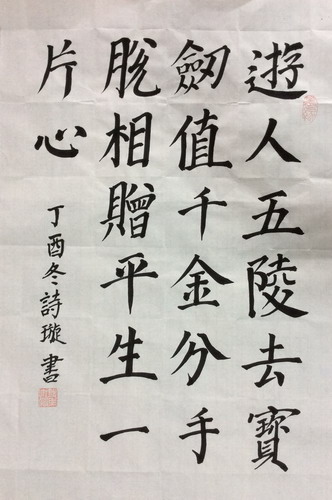 遊人五陵去寶
劒值千金分手
脫相贈平生一
片心
丁酉冬詩璇書